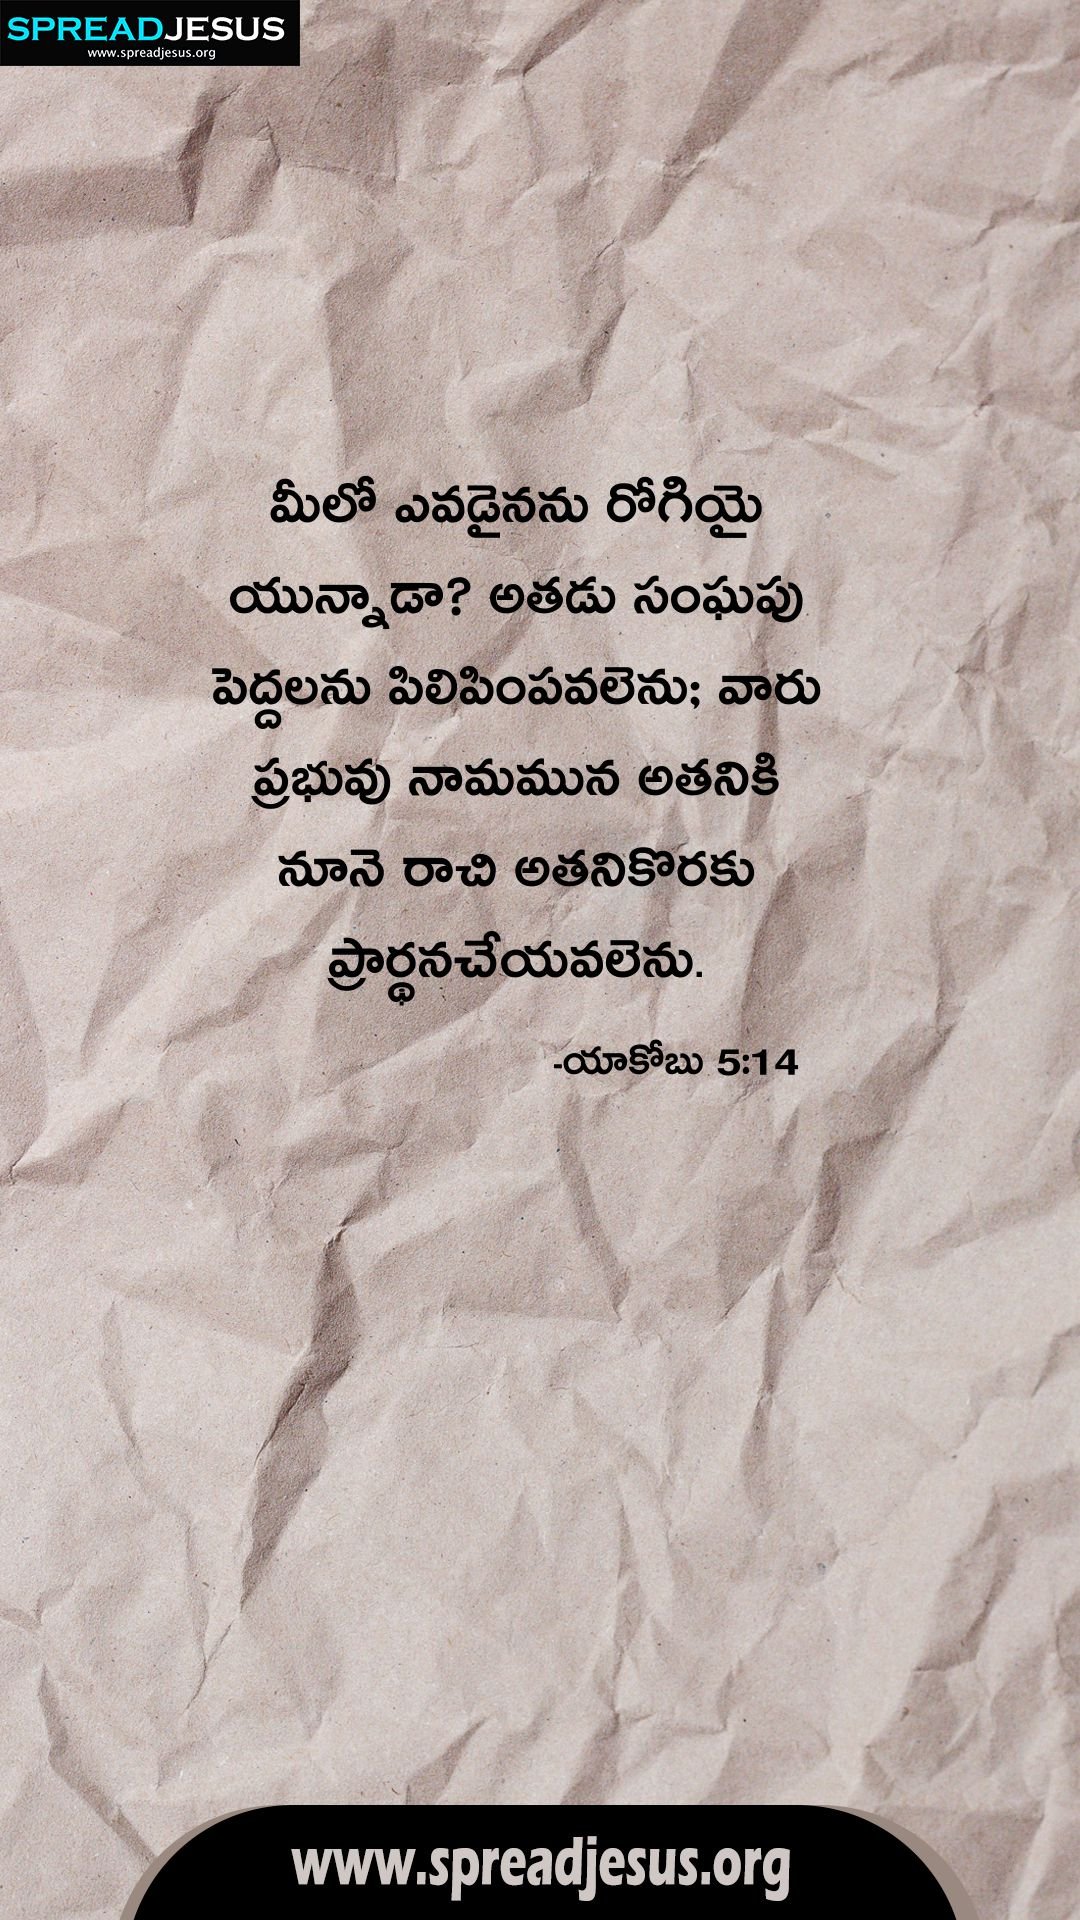 SPREADJESUS
www.spreadjesus.org
మీలో ఎవడైనను రోగియై
యున్నాడా? అతడు సంఘపు
పెద్దలను పిలిపింపవలెను; వారు
ప్రభువు నామమున అతనికి
నూనె రాచి అతనికొరకు
ప్రార్థనచేయవలెను.
-యాకోబు 5:14
www.spreadjesus.org